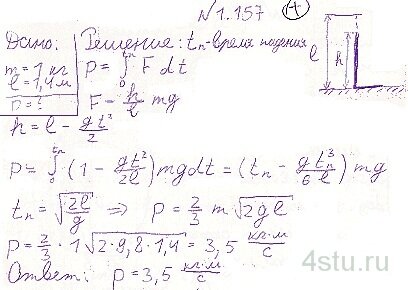 №1.157 (+)
Дано: Решение: tп - время падения
m = 1 кг
l = 1,4 м
p = ?
p = ∫₀^tп F dt
F - h/l mg
h = l - gt²/2
l h
p = ∫₀^tп (1 - gt²/2l) mg dt = (tп - gtп³/6l) mg
tп = √(2l/g) ⇒ p = 2/3 m √(2gl)
p = 2/3 · 1 √(2·9,8·1,4) = 3,5 кг·м/с
Ответ: p = 3,5 кг·м/с
4stu.ru